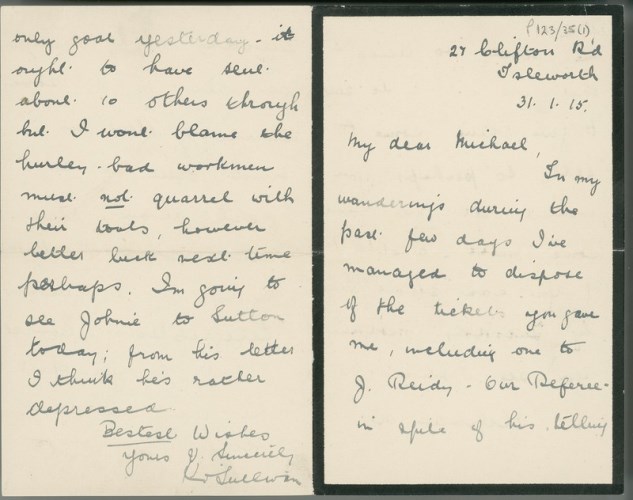 P123/35(1)
27 Clifton Rd
Isleworth
31.1.15.
My dear Michael,
In my
wanderings during the
past few days I've
managed to dispose
of the tickets you gave
me, including one to
J. Reidy - Our Referee -
in spite of his telling
only goal yesterday - it
ought to have sent
about 10 others through
but I wont blame the
hurley - bad workmen
must not quarrel with
their tools, however
better luck next time
perhaps. I'm going to
see Johnie to Sutton
today; from his letter
I think he's rather
depressed
Bestest Wishes
Yours V. Sincerely
O'Sullivan